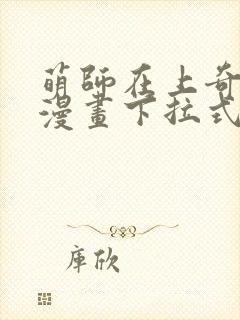 萌師在上奇
漫畫下拉式
庫欣